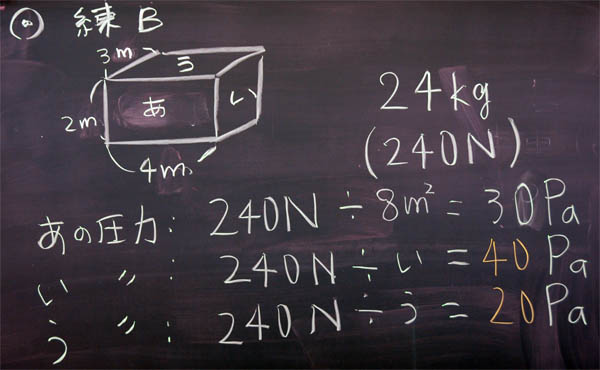 ⊙ 練B
3m
う
あ
い
2m
4m
24kg
(240N)
あの圧力: 240N ÷ 8m² = 30Pa
い 〃 : 240N ÷ い = 40Pa
う 〃 : 240N ÷ う = 20Pa